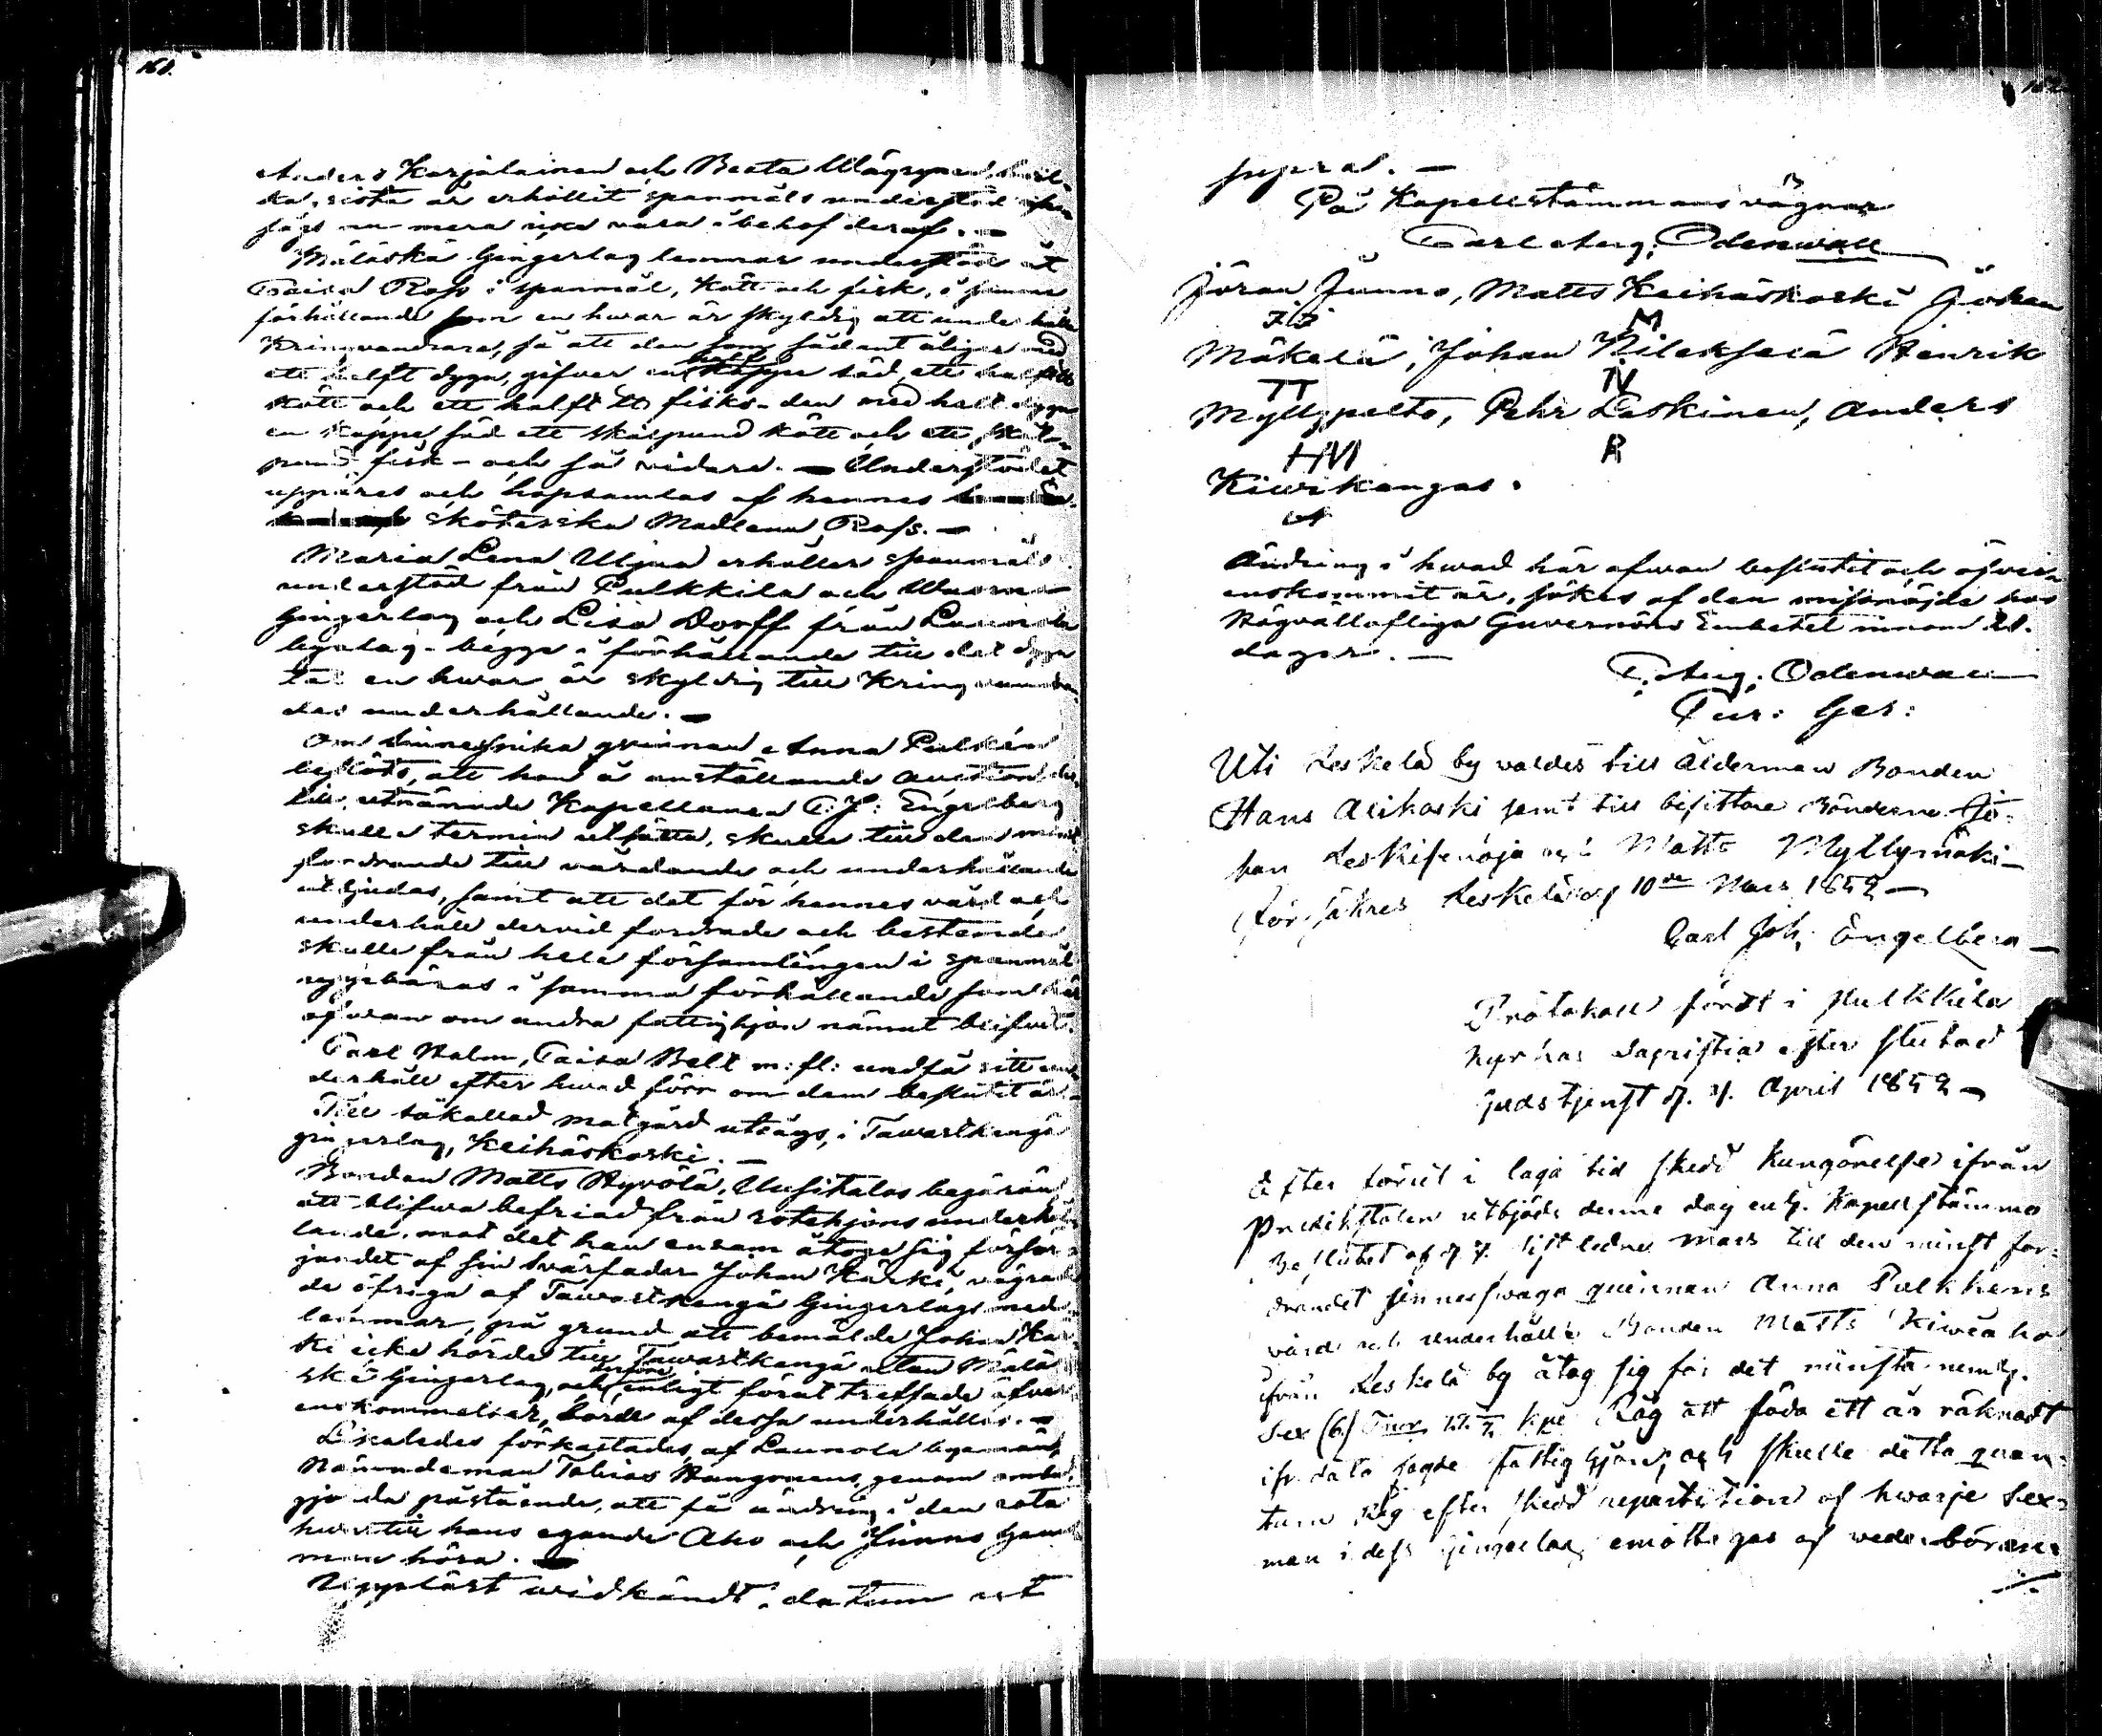 161.
Anders Karjalainen och Beata Wäyrynen, hvil-
ka, sista år erhållit spanmåls understöd
sägs nu mera icke vara i behof deraf. —
Mäläskä Gingerlag lemnar understöd åt
Caisa Rass i spanmål, Kött och fisk, i samma
förhållande som en hwar är skyldig att underhålla
Kringvandrare, så att den som sådant åligger med
ett helft dygn, gifver en half kappe säd, ett halft ℔
kött och ett halft ℔ fisk - den med helt dygn
en kappe säd ett skålpund kött och ett skål-
pund fisk - och så vidare. — Understödet
uppbäres och hopsamlas af hennes
sköterska Madlena Rass. —
Maria Lena Uljua erhåller spanmåls
understöd från Pulkkila och
Gingerlag och Lisa Dorff från Launola
byalag - bägge i förhållande till det dygn
tal en hwar är skyldig till Kringvandran-
des underhållande. —
Om sinnesvika qvinnan Anna Pulkén
beslöts, att hon å anställande Auction der-
till utnämnde Kapellanen C. J: Engelberg
skulle termin utsätta, skulle till den minst
fordrande till vårdande och underhållande
utbjudas, samt att det för hennes vård och
underhåll dervid fordrade och bestämde
skulle från hela församlingen i spanmål
uppbäras i samma förhållande som här
ofwan om andra fattighjon nämnt blifvit.
Carl Malm, Caisa Belt m: fl: undfå sitt un-
derhåll efter hwad förr om dem beslutit är.
Till såkallad matgård utsågs, i Tawastkangå
gingerlag, Keihäskoski. —
Bonden Matts Hyvölä, Uusitalos begäran
att blifwa befriad från rotehjons underhål-
lande, mot det han ensam åtoge sig försör-
jandet af sin Svärfader Johan Kärki, vägrade
de öfriga af Tawastkangå Gingerlags med-
lemmar, på grund att bemälde Johan Kär-
ki icke hörde till Tawastkangå utan Mäläs-
skä Gingerlag, och derföre enligt förut träffade öfver-
enskommelser, borde af dessa underhållas. —
Likaledes förkastades, af Launola byamän,
Nämndeman Tobias Kangonens, genom ombud,
gjorda påstående, att få ändring i den rota
hwartill hans egande Aho och Junno hem-
man höra. —
Uppläst widkändt, datum ut
162
supra. —
På Kapellstämmans vägnar
Carl Aug: Odenwall
Jöran Junno, Matts Keihäskoski Johan
J. J M
Mäkelä, Johan Kilekselä Henrik
TT N
Myllypelto, Pehr Laskinen, Anders
HM R
Kiwikangas.
Ändring i hwad här ofwan beslutit och öfver-
enskommit är, sökes af den missnöjde hos
Högvällofliga Guvernörs Embetet innom 21.
dagar. —
C. Aug: Odenwall
Cur: Ges:
Uti Leskelä by valdes till Ålderman Bonden
Hans Alikoski samt till bisittare Bönderne Jo-
han Leskisenoja och Matts Myllymäki —
Försäkras Leskelä d 10de Mars 1852 —
Carl Joh: Engelberg —
Protokoll fördt i Pulkkila
Kyrkas Sacristia efter slutad
gudstjenst d. 4. April 1852 —
Efter förut i laga tid skedd Kungörelse ifrån
Predikstolen utbjöds denne dag enl. Kapellstämmo
Beslutet af d 7. sistledne Mars till den minst for-
drandet sinnessvaga quinnan Anna Pulkkens
vård och underhåll: Bonden Matts Kiwiaho
ifrån Leskelä by åtog sig för det minsta, neml.
Sex (6) Tunr kpr Råg att föda ett år räknadt
ifr. dato sagde fattighjon; och skulle detta quan-
tum Råg efter skedd repartition af hwarje Sex-
man i dess gingerlag emottagas af wederböran-